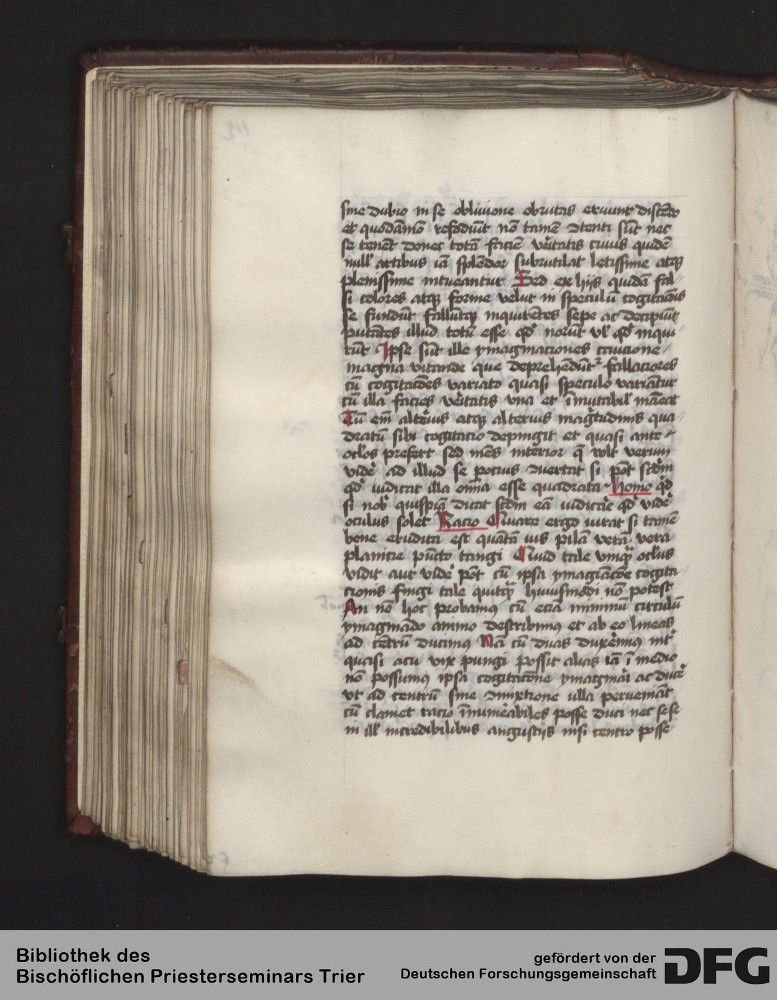 sine dubio in se obliuione obrutas eruunt discendo
et quodāmo refodiūt nō tamē ɔtenti sūt nec
se tenēt donec totā faciē vĕitatis cuius quedē
null' artibus iā splēdor subrutilat latissime atqꝫ
plenissime intueantur Sed ex hijs quidā fal
si colores atqꝫ forme velut in speculū cogitacōis
se fundūt fallūtqꝫ inquirētes sepe ac decipiūt
putātes illud totū esse qđ norūt vl' qđ inqui
rūt Ipse sūt ille ymaginationes cautione
magna vitande que deprehēdūtᷣ fallaciores
cū cogitacōes variato quasi speculo variātur
cū illa facies vĕitatis vna et īmutabil' maneat
Tū em̄ altĕius atqꝫ alterius magitudinis qua
dratū sibi cogitacio depingit et quasi ante
oclōs prefert sed mēs interior q̄ wlt verum
vidĕ ad illud se potius ɔuertat si pōt scđm
qđ iudicat illa om̄ia esse quadrata Homo qđ
si nob' quispiā dicat scđm eā iudicāe qđ vidĕ
oculus solet Racio Quare ergo iudicat si tamē
bene erudita est quātā uis pilā verā vera
planicie pūcto tangi Quid tale vnqꝫ oclus
vidit aut vidĕ pōt cū ipsa ymaginacōe cogita
cionis fingi tale quicqꝫ huiusmodi nō potest
An nō hoc probamus cū ecia minimū circulū
ymaginādo animo describimus et ab eo lineas
ad cētrū ducimus Nā cū duas duxĕimus int'
quas acu vix pungi possit alias iā ī medio
nō possumus ipsa cogitacōne ymagināi ac ducĕ
vt ad centrū sine ɔmixtione illa perueniāt
cū clamet racio īnumĕabiles posse duci nec sese
in ill' incredibilibus angustijs nisi centro posse
Bibliothek des
Bischöflichen Priesterseminars Trier
gefördert von der
Deutschen Forschungsgemeinschaft
DFG